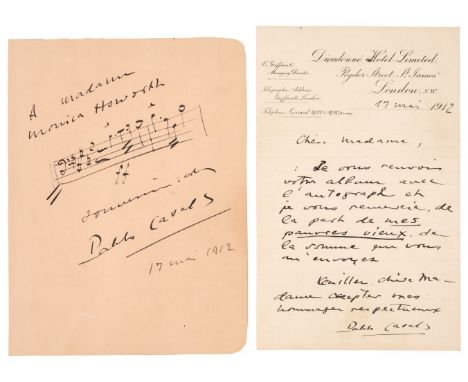 A Madame
Monica Howorth
ff
souvenir de
Pablo Casals
17 mai 1912
Dieudonné Hotel Limited.
Ryder Street, St. James'
London, S.W.
C. Guffanti
Managing Director
Telegraphic Address
Guffanti, London
17 mai 1912
Chère Madame,
Je vous renvois
votre album avec
l'autograph et
je vous remercie, de
la part de mes
pauvres vieux, de
la somme que vous
m'envoyez
Veuillez, chère Ma-
dame accepter mes
hommages respectueux
Pablo Casals